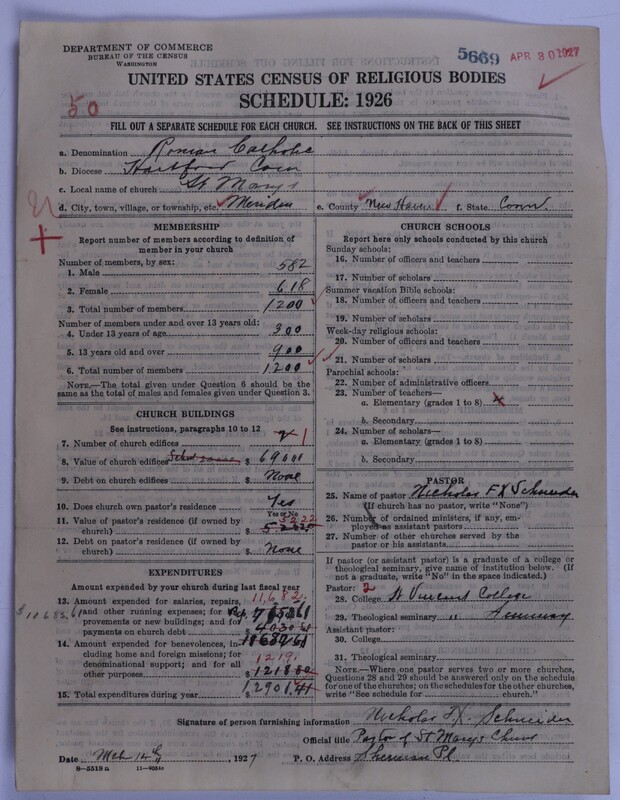 DEPARTMENT OF COMMERCE
BUREAU OF THE CENSUS
WASHINGTON
5669 APR 30 1927
UNITED STATES CENSUS OF RELIGIOUS BODIES
SCHEDULE: 1926
50
FILL OUT A SEPARATE SCHEDULE FOR EACH CHURCH. SEE INSTRUCTIONS ON THE BACK OF THIS SHEET
a. Denomination Roman Catholic
b. Diocese Hartford Conn
c. Local name of church St Marys
d. City, town, village, or township, etc. Meriden e. County New Haven f. State Conn.
MEMBERSHIP
Report number of members according to definition of member in your church
Number of members, by sex:
1. Male 582
2. Female 618
3. Total number of members 1200
Number of members under and over 13 years old:
4. Under 13 years of age 300
5. 13 years old and over 900
6. Total number of members 1200
NOTE.—The total given under Question 6 should be the
same as the total of males and females given under Question 3.
CHURCH BUILDINGS
See instructions, paragraphs 10 to 12
7. Number of church edifices 1
8. Value of church edifices $ 69000
9. Debt on church edifices $ None
10. Does church own pastor's residence? Yes
Yes or No
11. Value of pastor's residence (if owned by
church) $
12. Debt on pastor's residence (if owned by
church) $ None
EXPENDITURES
Amount expended by your church during last fiscal year
11,682
13. Amount expended for salaries, repairs,
$11682.61 and other running expenses; for im-
provements or new buildings; and for
payments on church debt $ 11682 61
14. Amount expended for benevolences, in-
cluding home and foreign missions; for
denominational support; and for all
other purposes $ 1218 80
15. Total expenditures during year $ 12901 41
CHURCH SCHOOLS
Report here only schools conducted by this church
Sunday schools:
16. Number of officers and teachers
17. Number of scholars
Summer vacation Bible schools:
18. Number of officers and teachers
19. Number of scholars
Week-day religious schools:
20. Number of officers and teachers
21. Number of scholars
Parochial schools:
22. Number of administrative officers
23. Number of teachers—
a. Elementary (grades 1 to 8)
b. Secondary
24. Number of scholars—
a. Elementary (grades 1 to 8)
b. Secondary
PASTOR
25. Name of pastor Nicholas F X Schneider
(If church has no pastor, write "None")
26. Number of ordained ministers, if any, em-
ployed as assistant pastors
27. Number of other churches served by the
pastor or his assistants
If pastor (or assistant pastor) is a graduate of a college or
theological seminary, give name of institution below. (If
not a graduate, write "No" in the space indicated.)
Pastor: 2
28. College St Vincent College
29. Theological seminary " Seminary
Assistant pastor:
30. College
31. Theological seminary
NOTE.—Where one pastor serves two or more churches,
Questions 28 and 29 should be answered only on the schedule
for one of the churches; on the schedules for the other churches,
write "See schedule for church."
Signature of person furnishing information Nicholas F.X. Schneider
Official title Pastor of St Marys Church
Date Mch 14th, 1927 P. O. Address Sherman Pl
8—5518 a